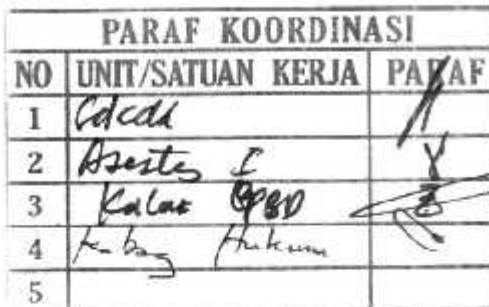 PARAF KOORDINASI
NO UNIT/SATUAN KERJA PARAF
1
2 Asesten I
3 Kalak BPBD
4 Kabag Hukum
5